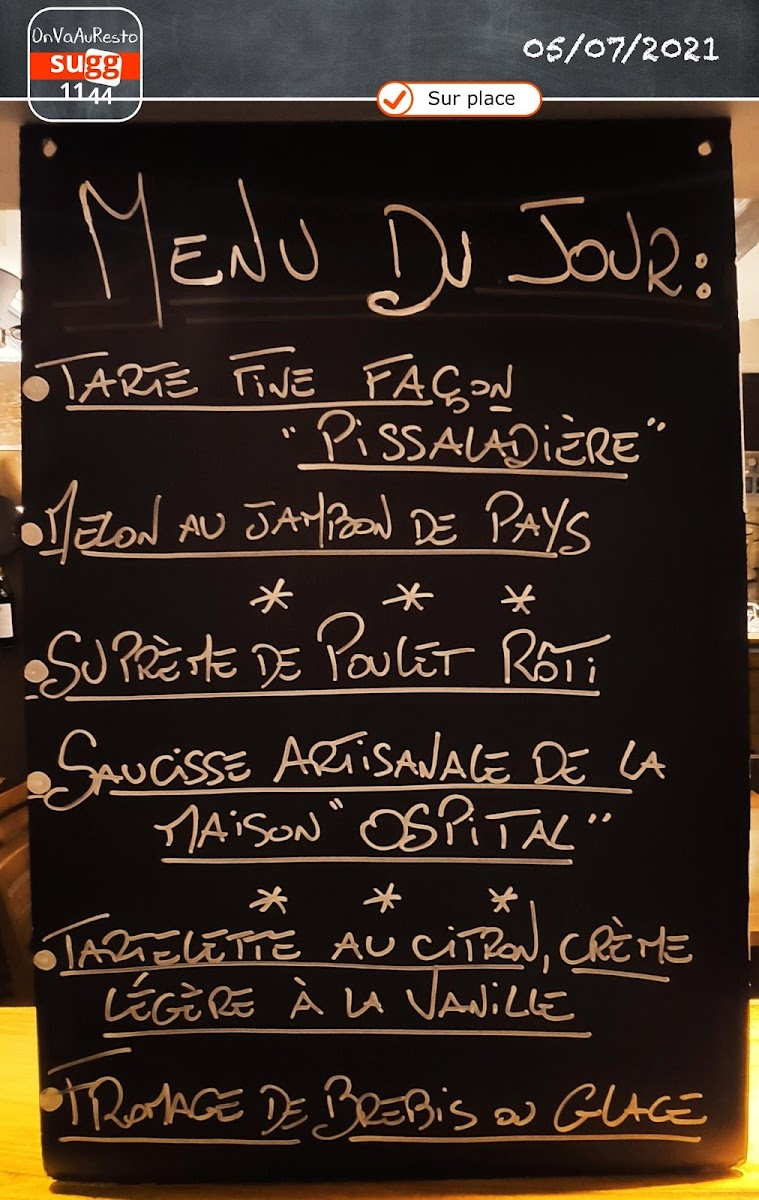 OnVaAuResto
sugg
1144
05/07/2021
Sur place
MENU DU JOUR:
• TARTE FINE FAÇON
"PISSALADIÈRE"
• MELON AU JAMBON DE PAYS
* * *
• SUPRÈME DE POULET RÔTI
• SAUCISSE ARTISANALE DE LA
MAISON "OSPITAL"
* * *
• TARTELETTE AU CITRON, CRÈME
LÉGÈRE À LA VANILLE
• FROMAGE DE BREBIS OU GLACE